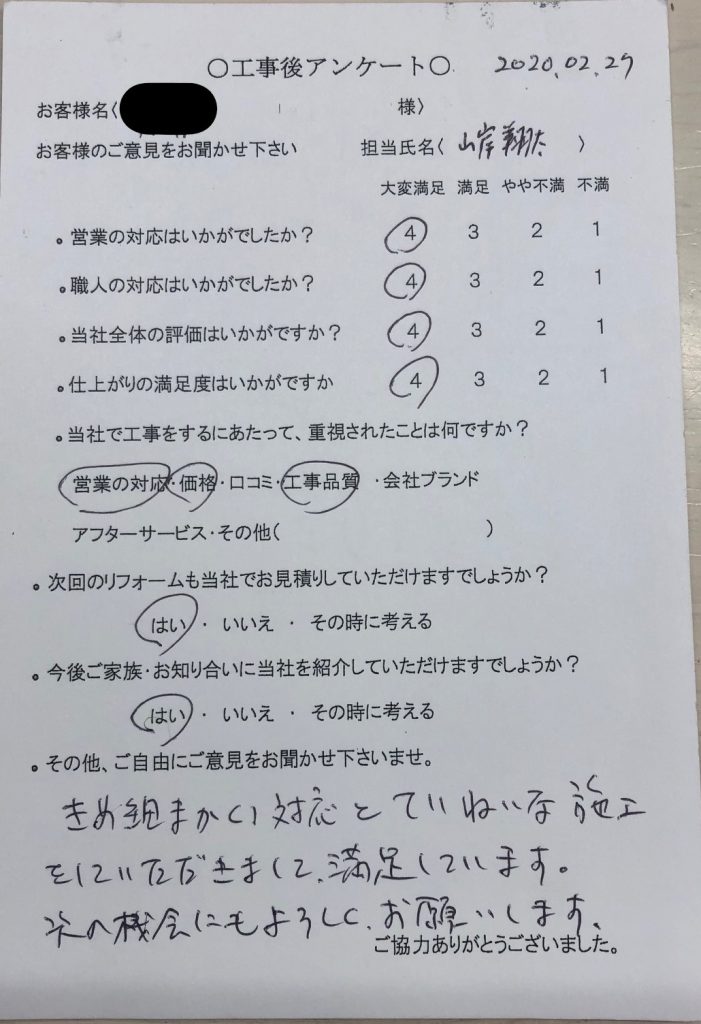 ○工事後アンケート○ 2020.02.29
お客様名〈 様〉
お客様のご意見をお聞かせ下さい 担当氏名〈 山岸翔太 〉
大変満足 満足 やや不満 不満
。営業の対応はいかがでしたか？ 4 3 2 1
。職人の対応はいかがでしたか？ 4 3 2 1
。当社全体の評価はいかがですか？ 4 3 2 1
。仕上がりの満足度はいかがですか 4 3 2 1
。当社で工事をするにあたって、重視されたことは何ですか？
営業の対応・価格・口コミ・工事品質 ・会社ブランド
アフターサービス・その他（ ）
。次回のリフォームも当社でお見積りしていただけますでしょうか？
はい ・ いいえ ・ その時に考える
。今後ご家族・お知り合いに当社を紹介していただけますでしょうか？
はい ・ いいえ ・ その時に考える
。その他、ご自由にご意見をお聞かせ下さいませ。
きめ細まかい対応とていねいな施工
をしていただきまして、満足しています。
次の機会にもよろしく、お願いします、
ご協力ありがとうございました。